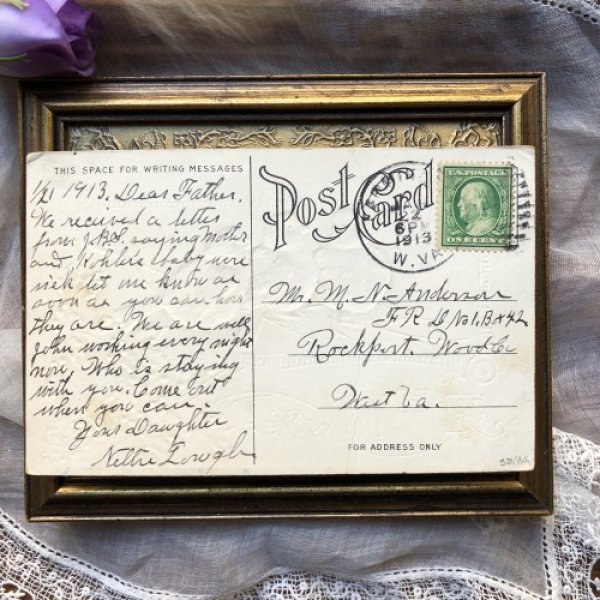 THIS SPACE FOR WRITING MESSAGES
1/21 1913. Dear Father.
We received a letter
from saying Mother
and baby were
sick let me know as
soon as you can how
they are. We are well
John working every night
now. Who is staying
with you. Come out
when you can.
Your Daughter
Nettie
Post Card
22
6 PM
1913
W. VA.
U.S. POSTAGE
ONE CENT
Mr. M. N. Anderson
F R D No 1, Bx 42
Rockport. Wood Co
West Va.
FOR ADDRESS ONLY